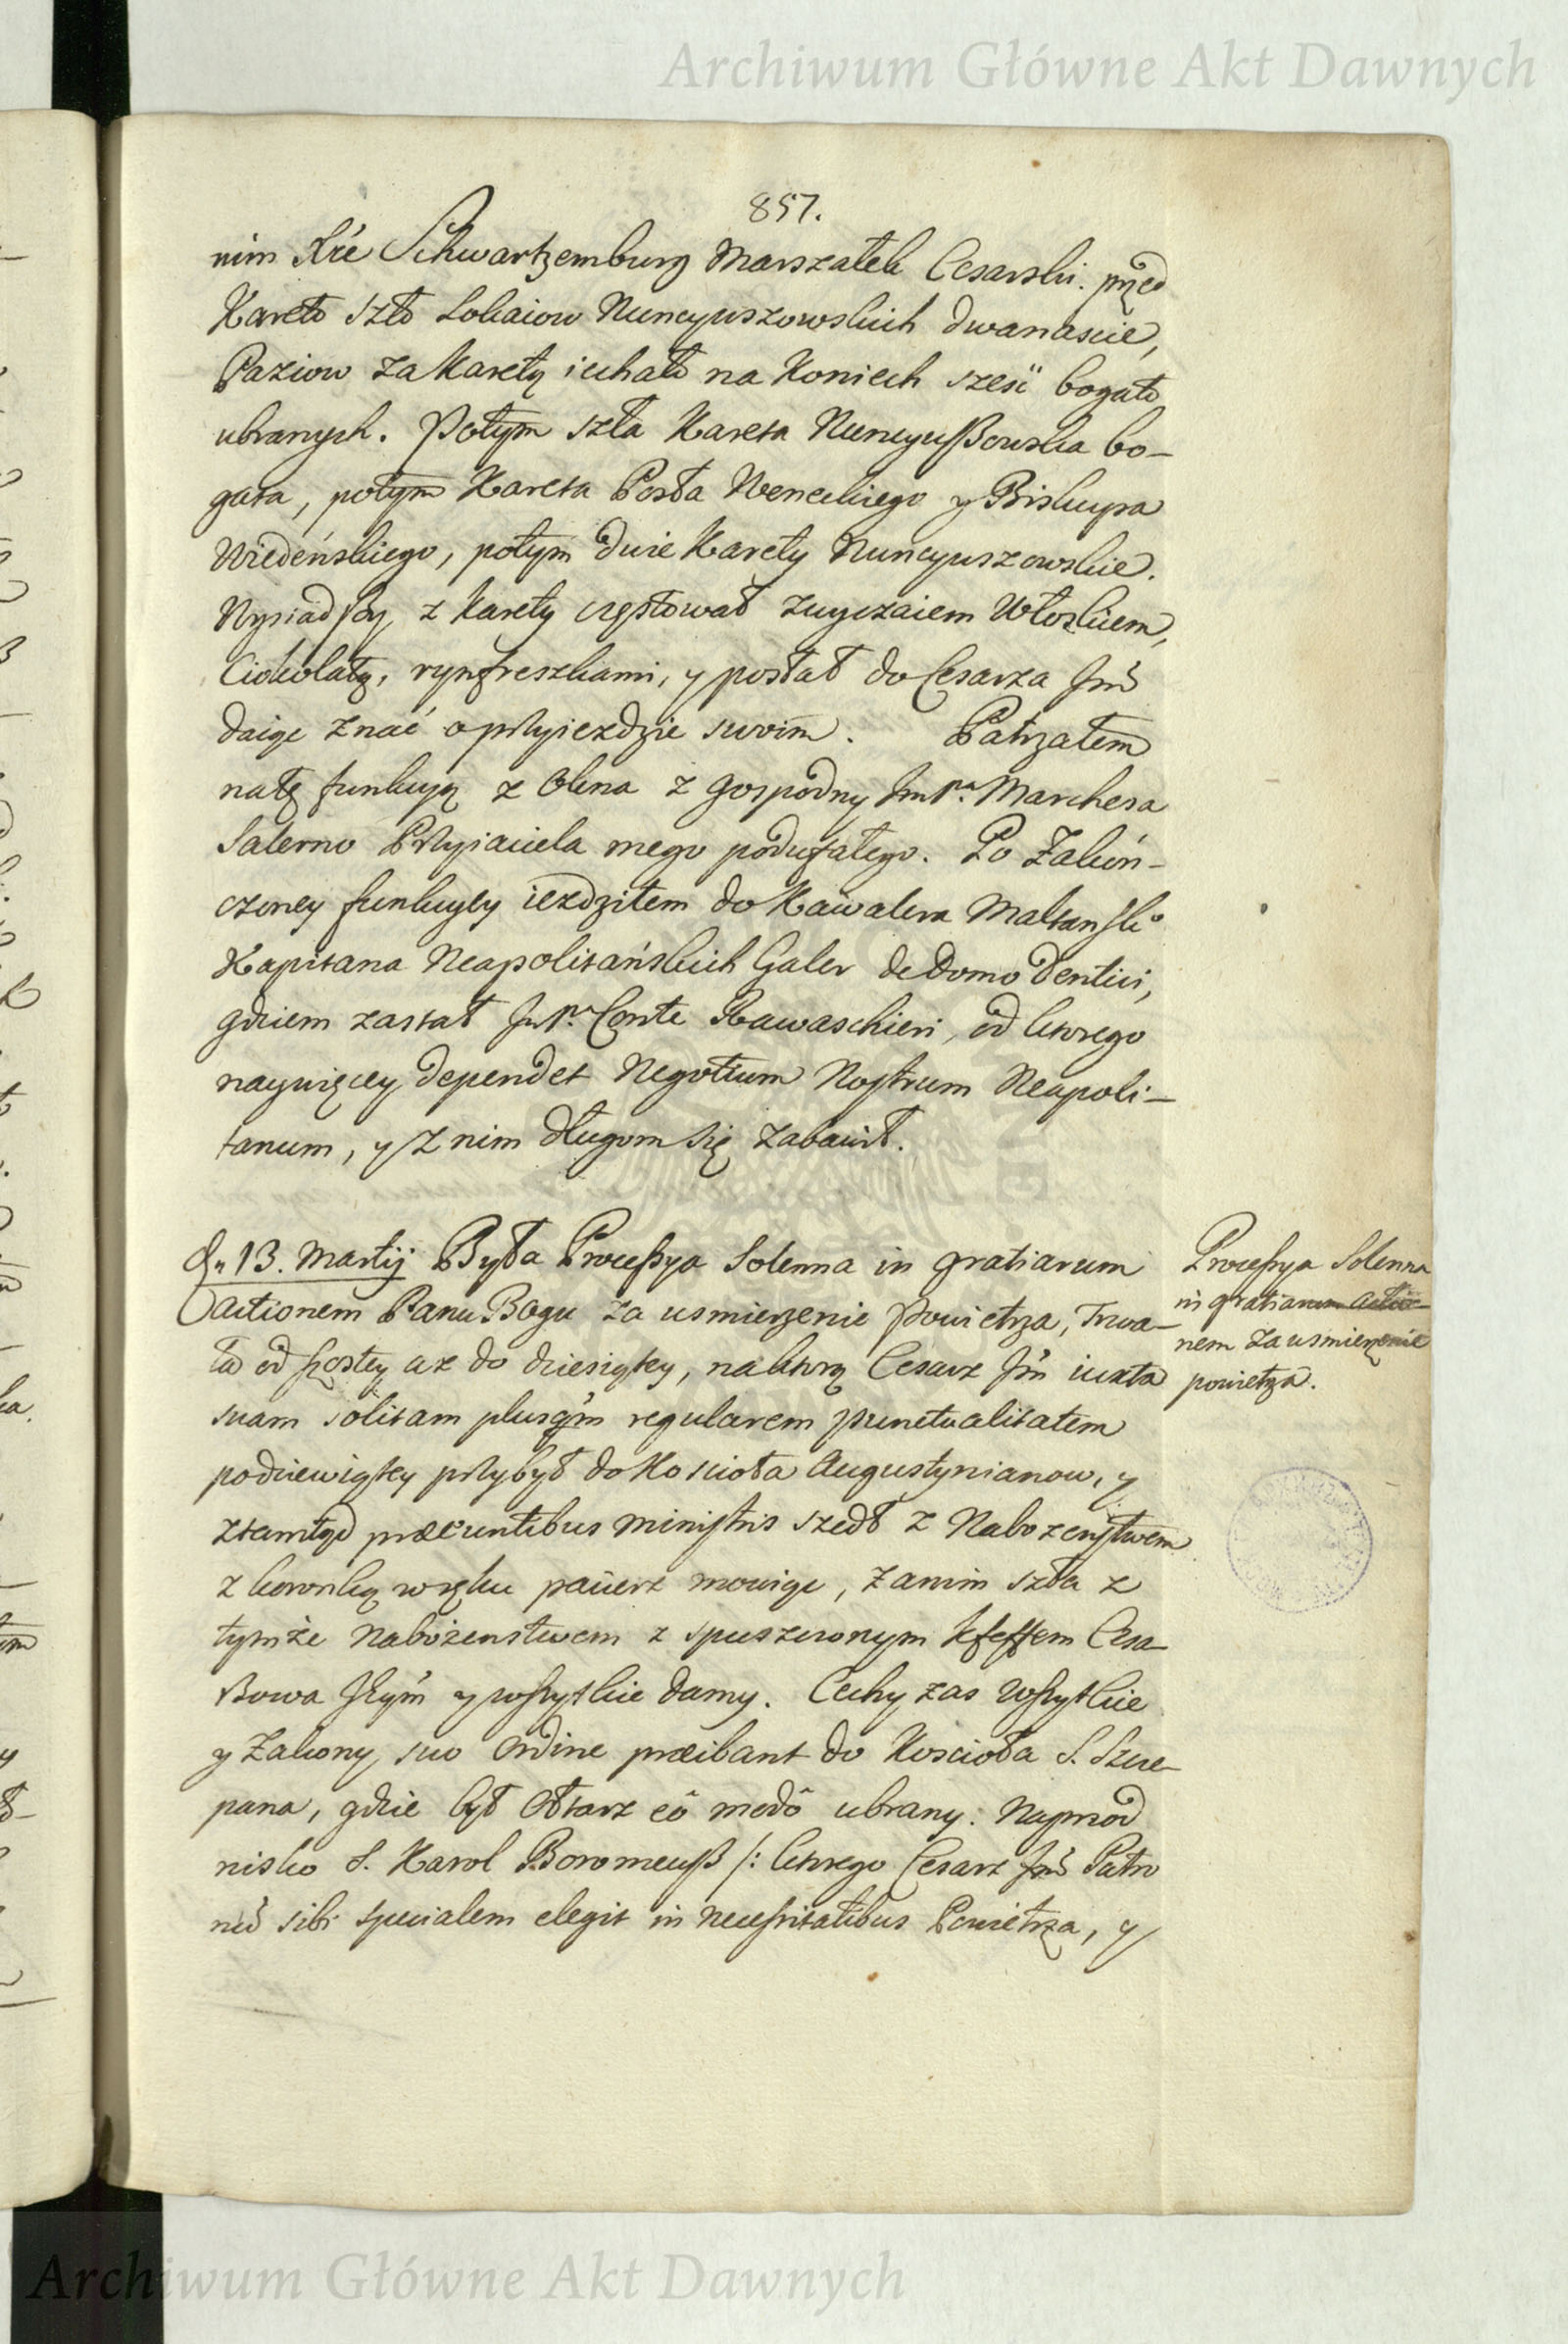 Archiwum Główne Akt Dawnych
857.
nim Xże Schwartzemburg Marszałek Cesarski. przed
Karetą szło Lokaiow Nuncyuszowskich dwanascie,
Paziow za Karetą iechało na Koniech szesć bogato
ubranych. Potym szła Kareta Nuncyußowska bo-
gata, potym Kareta Posła Weneckiego y Biskupa
Wiedeńskiego, potym dwie Karety Nuncyuszowskie.
Wysiadszy z Karety częstował zwyczaiem Włoskiem,
Ciokolatą, rynfreszkami, y posłał do Cesarza Jmć
daiąc znać o przyiezdzie swoim. Patrzałem
na tę funkcyą z Okna z gospodny Jmp. Marchesa
Salerno Przyiaciela mego podufałego. Po Zakoń-
czoney funkcyey iezdziłem do Kawalera Maltanskio
Kapitana Neapolitańskich Galer de Domo Dentici,
gdziem zastał Jmp. Conte Rawaschieri, od ktorego
naywięcey dependet Negotium Nostrum Neapoli-
tanum, y z nim długom się zabawił.
Dn 13. Martij Była Processya Solenna in gratiarum
actionem Panu Bogu za usmierzenie Powietrza, Trwa-
ła od szostey az do dziesiątey, na ktorą Cesarz Jm iuxta
suam solitam plusqm regularem punctualitatem
po dziewiątey przybył do Koscioła Augustynianow, y
ztamtąd praeeuntibus ministris szedł z Nabozenstwem
z koronką w ręku pacierz mowiąc, za nim szła z
tymże Nabożenstwem z spuszczonym
Cesa-
rzowa Jeym y wszytkie damy. Cechy zas wszytkie
y Zakony suo Ordine praeibant do Koscioła S. Szcze-
pana, gdzie był Ołtarz eô modô ubrany. Naprzod
nisko S. Karol Boromeuß /: ktorego Cesarz Jmć Patro
nū sibi specialem elegit in necessitatibus Powietrza, y
Processya Solenna
in gratiarum actio-
nem za usmierzenie
powietrza.
Archiwum Główne Akt Dawnych